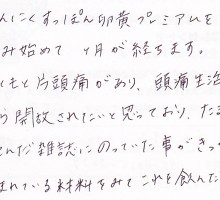 んにくすっぽん卵黄プレミアムを
み始めて ヶ月が経ちます。
くもと片頭痛があり、頭痛生活
開放されたいと思っており、たま
んだ雑誌にのっていた事がきっ
まれている材料をみてこれを飲んだ